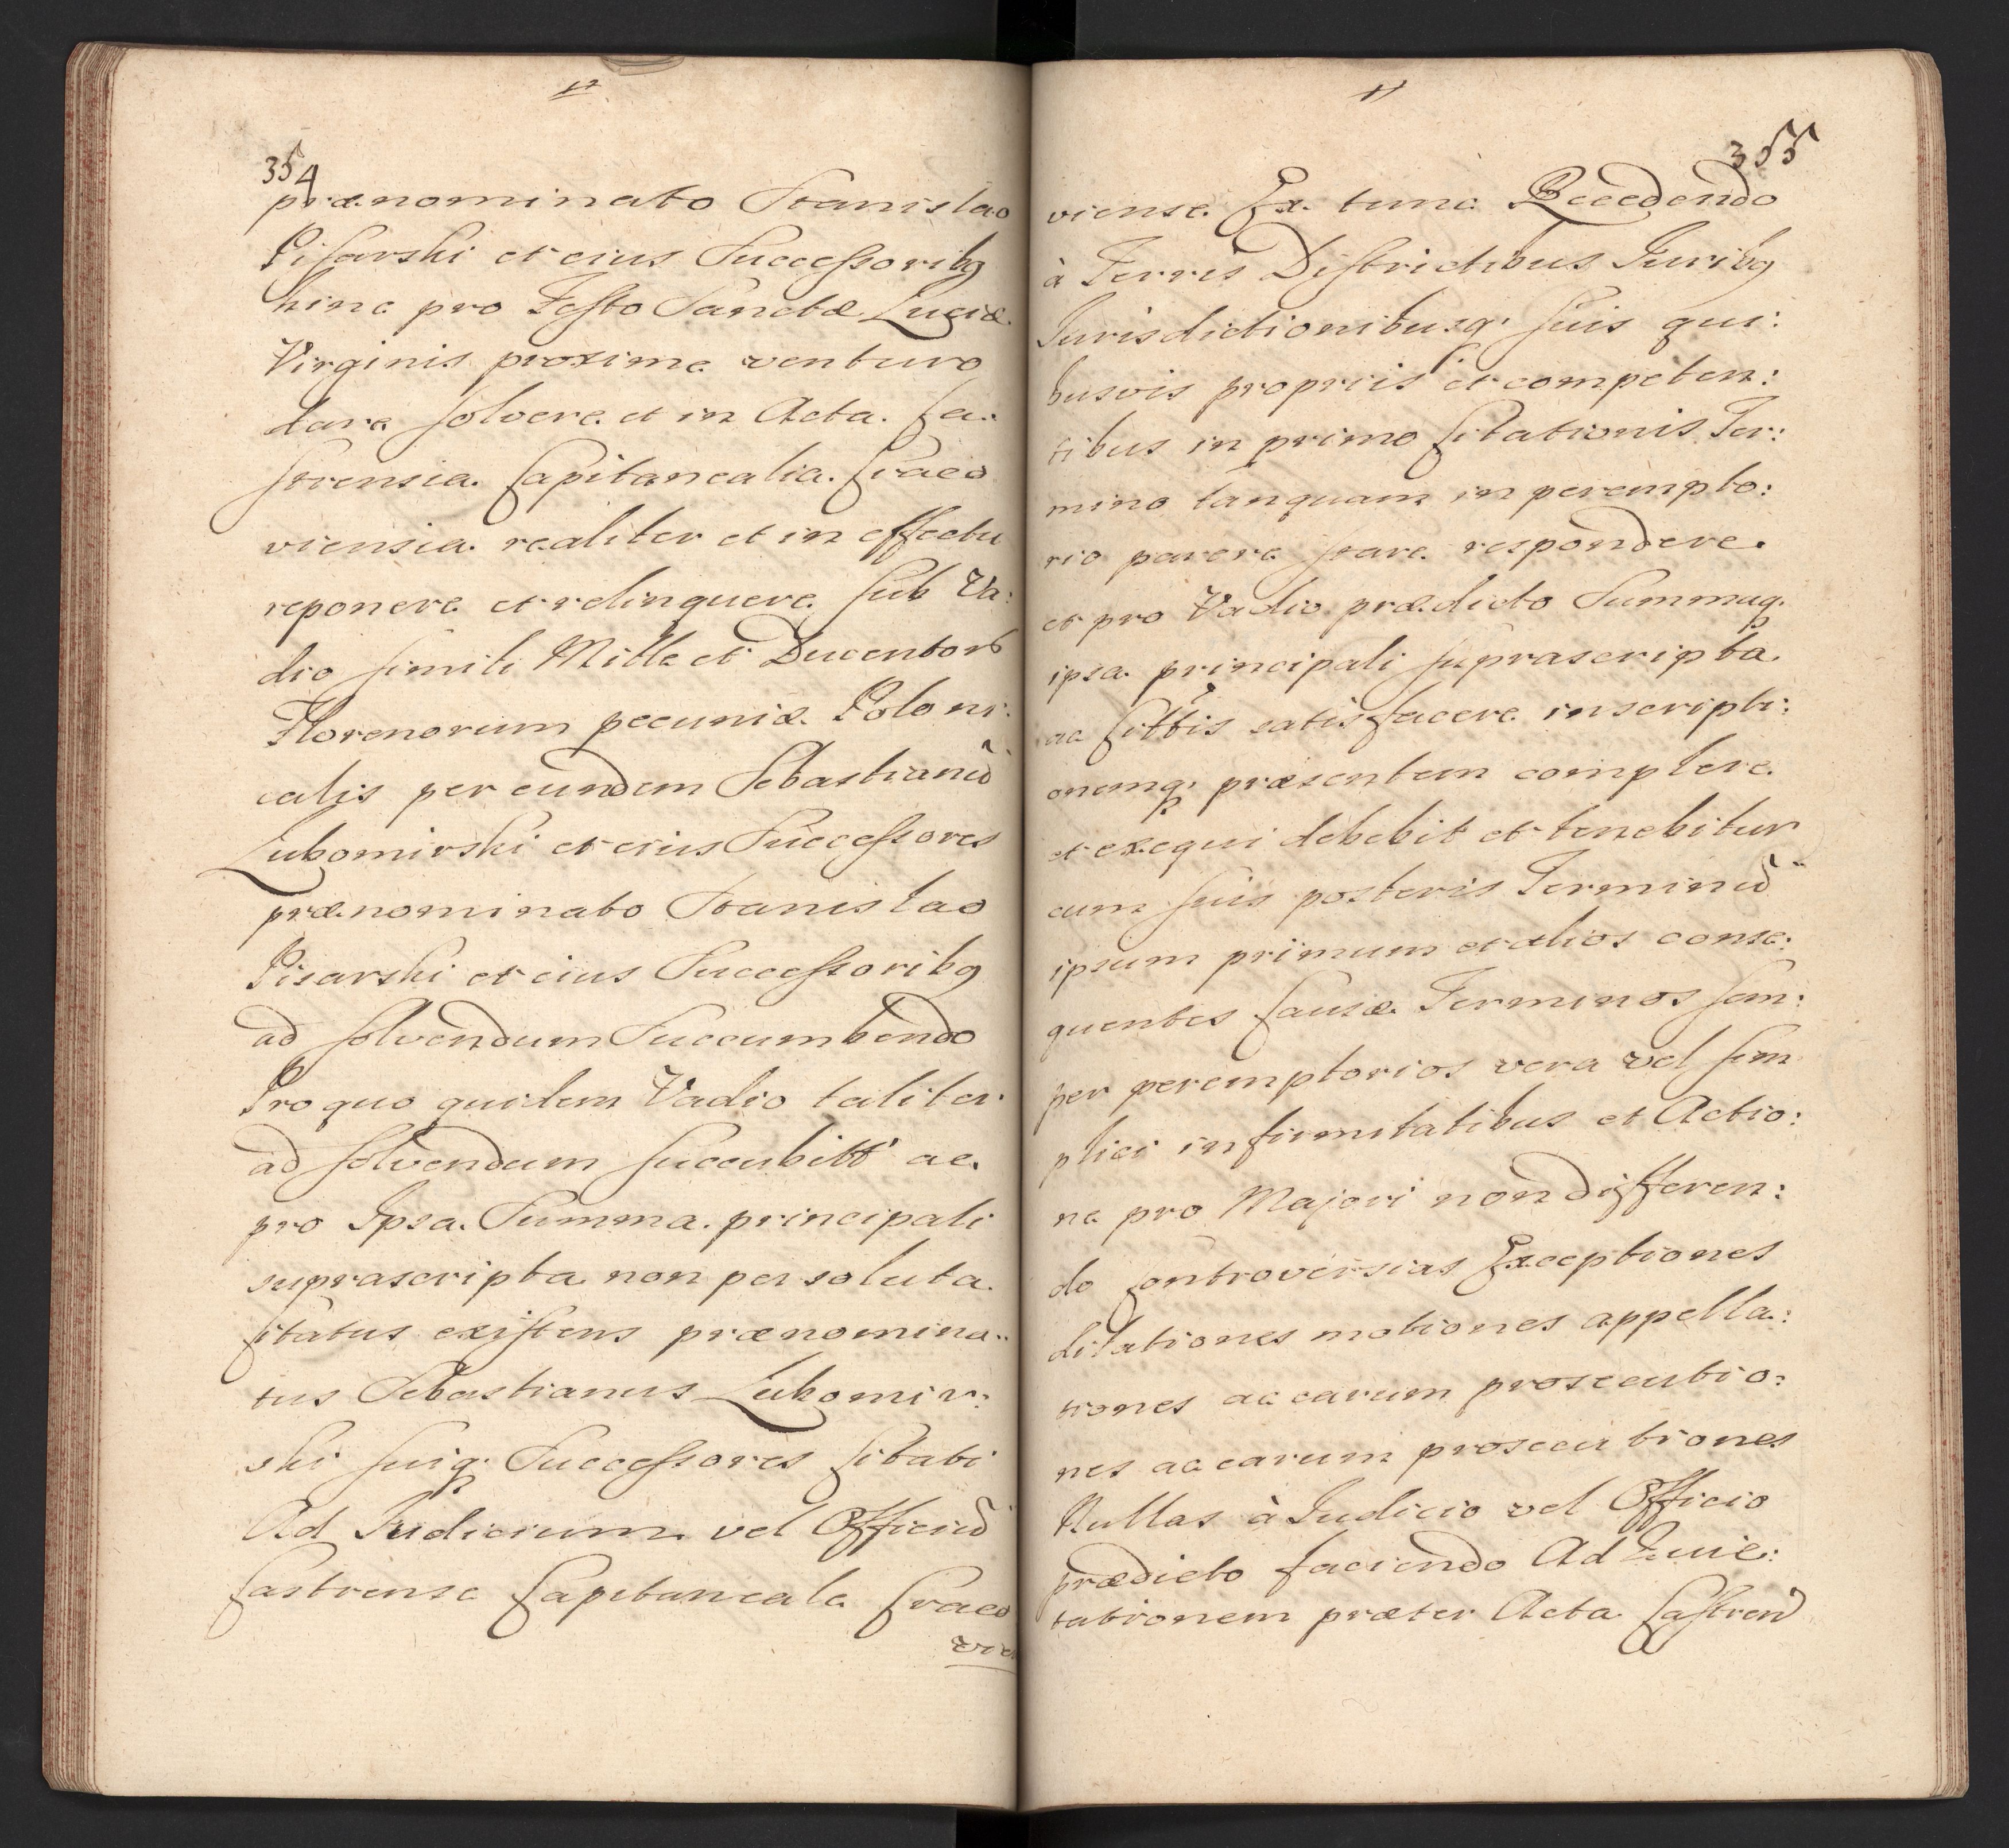 354
prænominato Stanislao
Pisarski et eius Successoribq
hinc pro Festo Sanctæ Luciæ
Virginis proxime venturo
dare solvere et in Acta Ca:
strensia Capitanealia Craco
viensia realiter et in effectu
reponere et relinquere sub Va:
dio simili Mille et Ducentorũ
Florenorum pecuniæ Poloni:
calis per eundem Sebastianũ
Lubomirski et eius Successores
prænominato Stanislao
Pisarski et eius Successoribq
ad solvendum Succumbendo
Pro quo quidem Vadio taliter
ad solvendum succubitt ac
pro Ipsa Summa principali
suprascripta non persoluta
Citatus existens prænomina:
tus Sebastianus Lubomir:
ski suiq. Successores Citati
Ad Judicium vel Officiũ
Castrense Capitaneale Craco
vie
355
viense Ex tunc Recedendo
à Terris Districtibus Juribq
Jurisdictionibusq. suis qui:
busvis propriis et competen:
tibus in primo Citationis Ter:
mino tanquam in perempto:
rio parere stare respondere
et pro Vadio prædicto Summaq.
ipsa principali suprascripta
ac Cittis satisfacere inscripti:
onemq. præsentem complere
et exequi debebit et tenebitur
cum suis posteris Terminũ
ipsum primum et alios conse:
quentes Causæ Terminos sem:
per peremptorios vera vel sim
plici infirmitatibus et Actio:
ne pro Majori non differen:
do Controversias Exceptiones
dilationes motiones appella:
tiones ac earum prosecutio:
nes ac earum prosecutiones
Nullas à Judicio vel Officio
prædicto faciendo Ad Quie:
tationem præter Acta Castren